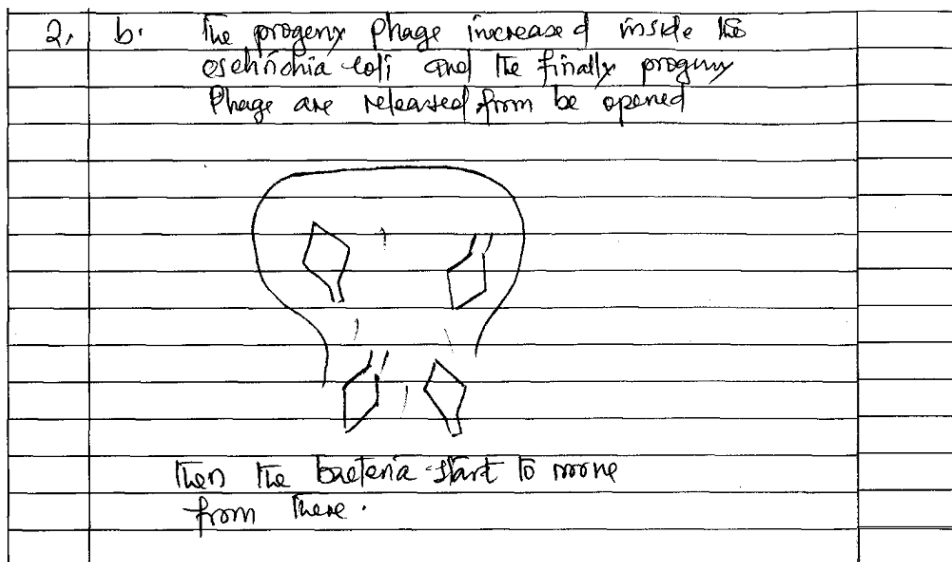 2. b. The progeny phage increased inside the
eschrichia coli and the finally progeny
Phage are released from be opened
then the bacteria start to move
from there.